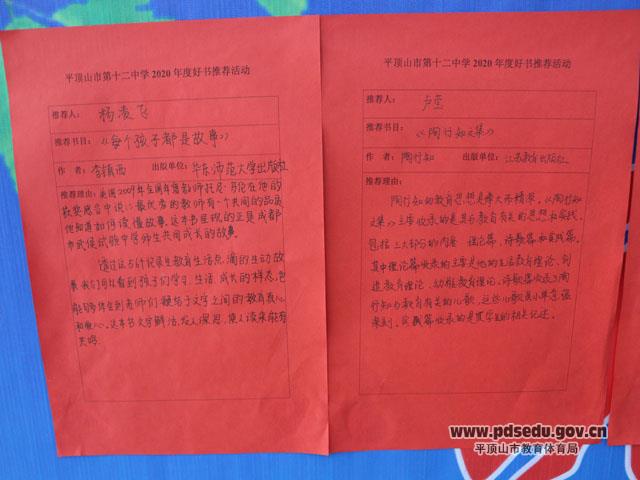 平顶山市第十二中学2020年度好书推荐活动
推荐人： 杨凌飞
推荐书目： 《每个孩子都是故事》
作 者： 李镇西 出版单位： 华东师范大学出版社
推荐理由： 美国2009年全国年度教师托尼·马伦在他的
获奖感言中说：最优秀的教师有一个共同的品质
他知道如何读懂故事。这本书呈现的正是成都
市武侯实验中学师生共同成长的故事。
透过这51个记录生教育生活点滴的生动故
事我们可以看到孩子们学习、生活、成长的样态，也
能够体会到老师们
和童心。这本书文字鲜活，发人深思，使人读来能有
共鸣。
平顶山市第十二中学2020年度好书推荐活动
推荐人： 卢莹
推荐书目： 《陶行知文集》
作 者： 陶行知 出版单位： 江苏教育出版社
推荐理由：
陶行知的教育思想是博大而精深，《陶行知
文集》主要收录的是其与教育有关的思想和实践，
包括三大部分的内容 理论篇，诗歌篇和实践篇，
其中理论篇收录的主要是他的生活教育理论，创
造教育理论、幼稚教育理论。诗歌篇收录了陶
行知与教育有关的儿歌，这些儿歌
实践篇收录的是
www.pdsedu.gov.cn
平顶山市教育体育局